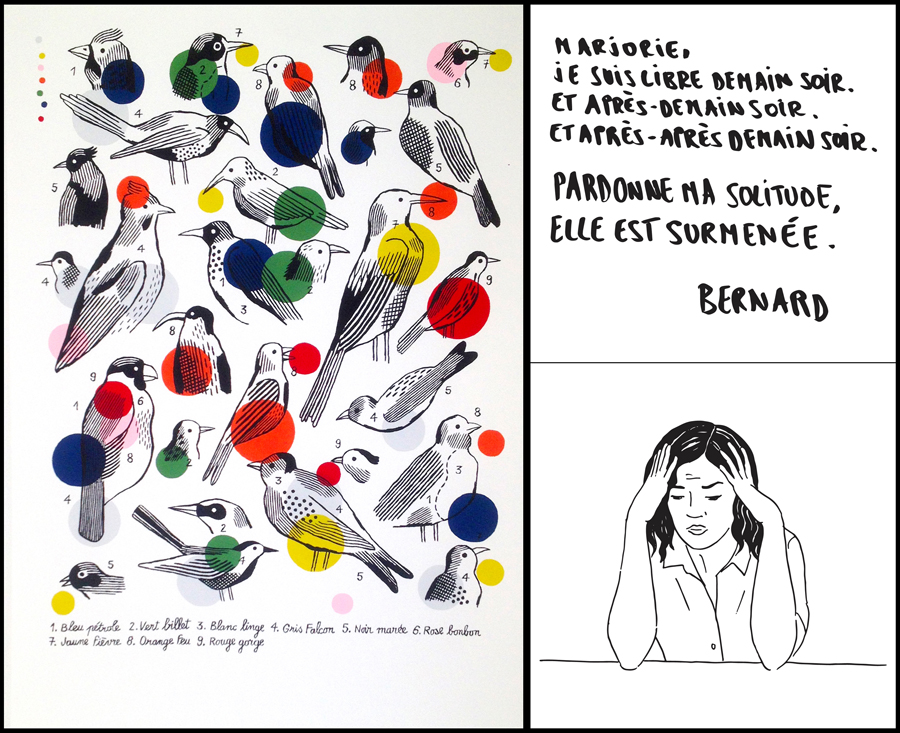 1. Bleu pétrole 2. Vert billet 3. Blanc linge 4. Gris Falcon 5. Noir marée 6. Rose bonbon
7. Jaune fièvre 8. Orange feu 9. Rouge gorge
MARJORIE,
JE SUIS LIBRE DEMAIN SOIR.
ET APRÈS-DEMAIN SOIR.
ET APRÈS-APRÈS DEMAIN SOIR.
PARDONNE MA SOLITUDE,
ELLE EST SURMENÉE.
BERNARD